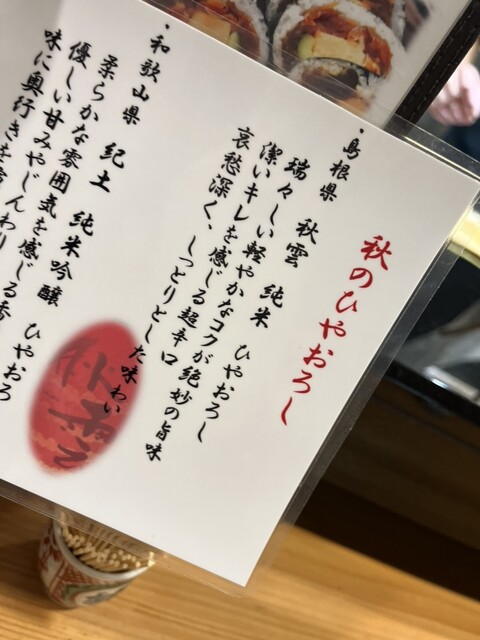 秋のひやおろし
・島根県 秋雲 純米 ひやおろし
瑞々しい軽やかなコクが絶妙の旨味
潔いキレを感じる超辛口
哀愁深く、しっとりとした味わい
・和歌山県 紀土 純米吟醸 ひやおろ
柔らかな雰囲気を感じる香
優しい甘みやじんわり
味に奥行きを
秋雲